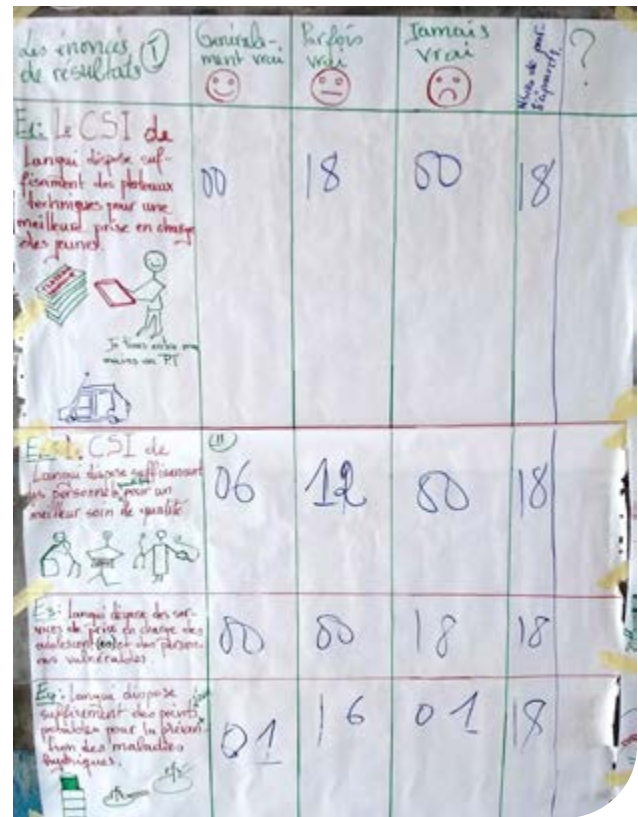 Les énoncés de résultats ①
Générala-
ment vrai
Parfois
vrai
Jamais
vrai
?
E1: Le CSI de
Langui dispose suf-
fisament des plateaux
techniques pour une
meilleure prise en charge
des jeunes.
00
18
00
18
Je tiens entre mes
mains un PT
E2: Le CSI de
Langui dispose suffisamment
des personnels qualifiés pour un
meilleur soin de qualité
11
06
12
00
18
E3: Langui dispose des ser-
vices de prise en charge des
adolescent(es) et des person-
nes vulnérables.
00
00
18
18
E4: Langui dispose
suffisement des points
potables pour la préven-
tion des maladies
hydriques.
01
16
01
18